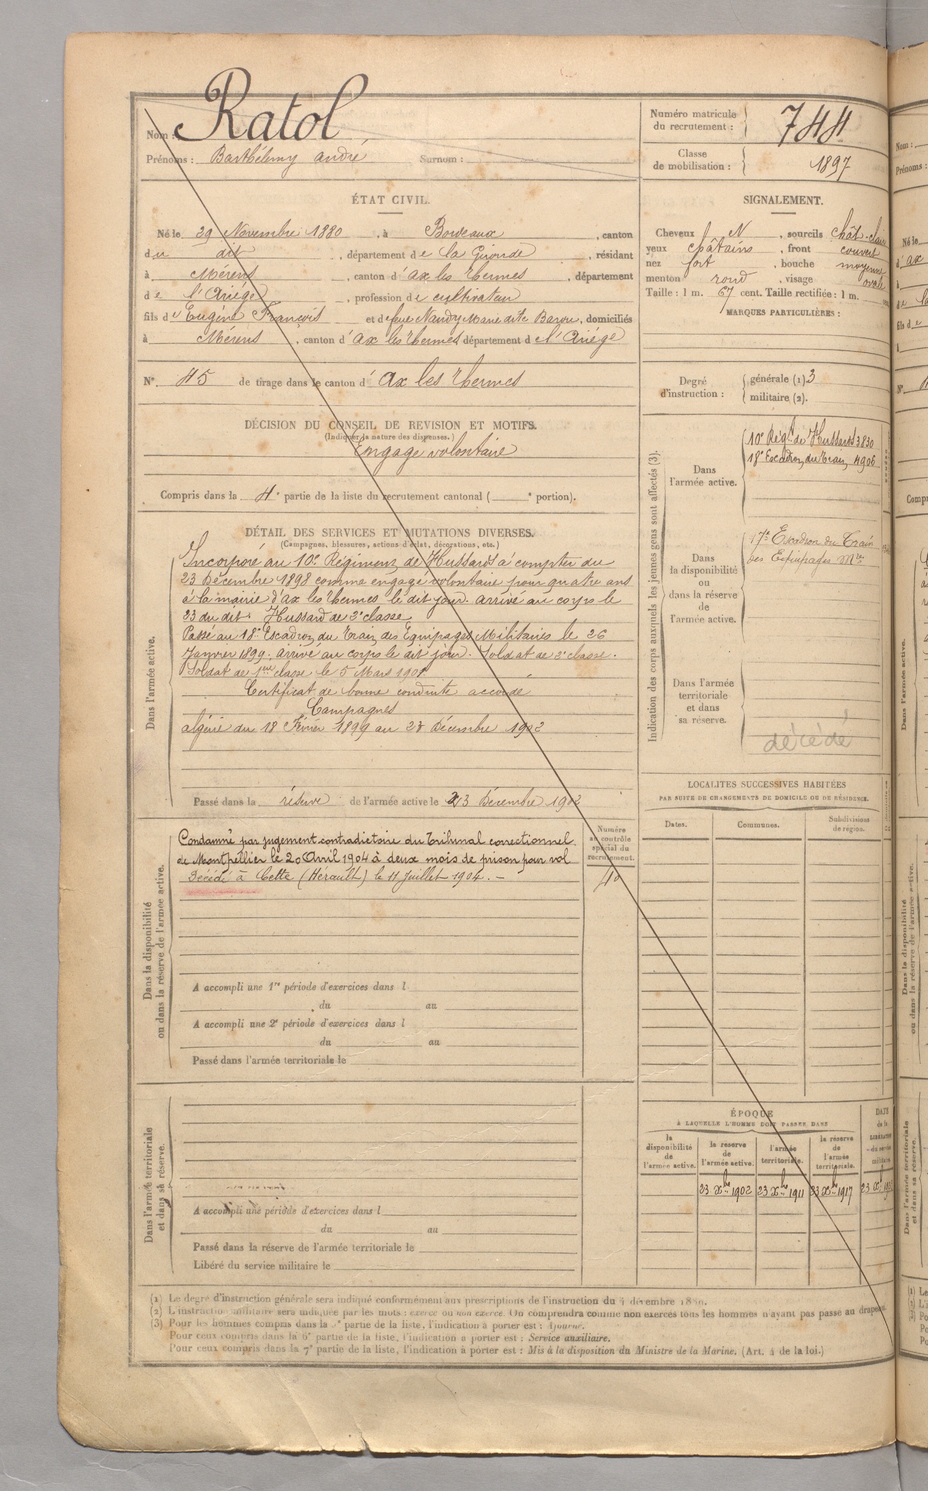 Nom : Ratol
Prénoms : Barthélemy André Surnom :
Numéro matricule du recrutement : 744
Classe de mobilisation : 1897
ÉTAT CIVIL.
Né le 29 Novembre 1880, à Bordeaux, canton
du dit, département de la Gironde, résidant
à Mérens, canton d'Ax les Thermes, département
de l'Ariége, profession de cultivateur
fils de Eugène François et de feue Naudy Marie dite Bazou, domiciliés
à Mérens, canton d'Ax les Thermes département de l'Ariége
N° 45 de tirage dans le canton d'Ax les Thermes
DÉCISION DU CONSEIL DE REVISION ET MOTIFS.
(Indiquer la nature des dispenses.)
Engagé volontaire
Compris dans la 4e partie de la liste du recrutement cantonal ( e portion).
DÉTAIL DES SERVICES ET MUTATIONS DIVERSES.
(Campagnes, blessures, actions d'éclat, décorations, etc.)
Dans l'armée active.
Incorporé au 10e Régiment de Hussards à compter du
23 Décembre 1898 comme engagé volontaire pour quatre ans
à la mairie d'Ax les Thermes le dit jour. Arrivé au corps le
23 du dit. Hussard de 2e classe
Passé au 18e Escadron du Train des Equipages Militaires le 26
Janvier 1899. arrivé au corps le dit jour. Soldat de 2e classe.
Soldat de 1ère classe le 5 Mars 1901
Certificat de bonne conduite accordé
Campagnes
Algérie du 18 Février 1899 au 28 Décembre 1902
Passé dans la réserve de l'armée active le 23 Décembre 1902
Dans la disponibilité ou dans la réserve de l'armée active.
Condamné par jugement contradictoire du Tribunal correctionnel
de Montpellier le 20 Avril 1904 à deux mois de prison pour vol
Décédé à Cette (Hérault) le 11 Juillet 1904. —
Numéro au contrôle spécial du recrutement.
40
A accompli une 1re période d'exercices dans l
du au
A accompli une 2e période d'exercices dans l
du au
Passé dans l'armée territoriale le
Dans l'armée territoriale et dans sa réserve.
A accompli une période d'exercices dans l
du au
Passé dans la réserve de l'armée territoriale le
Libéré du service militaire le
SIGNALEMENT.
Cheveux N, sourcils chât. clairs
yeux châtains, front couvert
nez fort, bouche moyenne
menton rond, visage ovale
Taille : 1 m. 67 cent. Taille rectifiée : 1 m.
MARQUES PARTICULIÈRES :
Degré d'instruction : générale (1) 3
militaire (2).
Indication des corps auxquels les jeunes gens sont affectés (3).
Dans l'armée active.
10e Régt de Hussards 3830
18e Escadron du Train 4906
Dans la disponibilité ou dans la réserve de l'armée active.
17e Escadron du Train
des Equipages Mres
Dans l'armée territoriale et dans sa réserve.
décédé
LOCALITÉS SUCCESSIVES HABITÉES
PAR SUITE DE CHANGEMENTS DE DOMICILE OU DE RÉSIDENCE.
Dates. Communes. Subdivisions de région.
ÉPOQUE
À LAQUELLE L'HOMME DOIT PASSER DANS
la disponibilité de l'armée active.
la réserve de l'armée active.
l'armée territoriale.
la réserve de l'armée territoriale.
DATE de la
23 Xbre 1902 23 Xbre 1911 23 Xbre 1917
(1) Le degré d'instruction générale sera indiqué conformément aux prescriptions de l'instruction du 4 décembre 1889.
(2) L'instruction militaire sera indiquée par les mots : exercé ou non exercé. On comprendra comme non exercés tous les hommes n'ayant pas passé au drapeau.
(3) Pour les hommes compris dans la 5e partie de la liste, l'indication à porter est : Ajourné.
Pour ceux compris dans la 6e partie de la liste, l'indication à porter est : Service auxiliaire.
Pour ceux compris dans la 7e partie de la liste, l'indication à porter est : Mis à la disposition du Ministre de la Marine. (Art. 4 de la loi.)